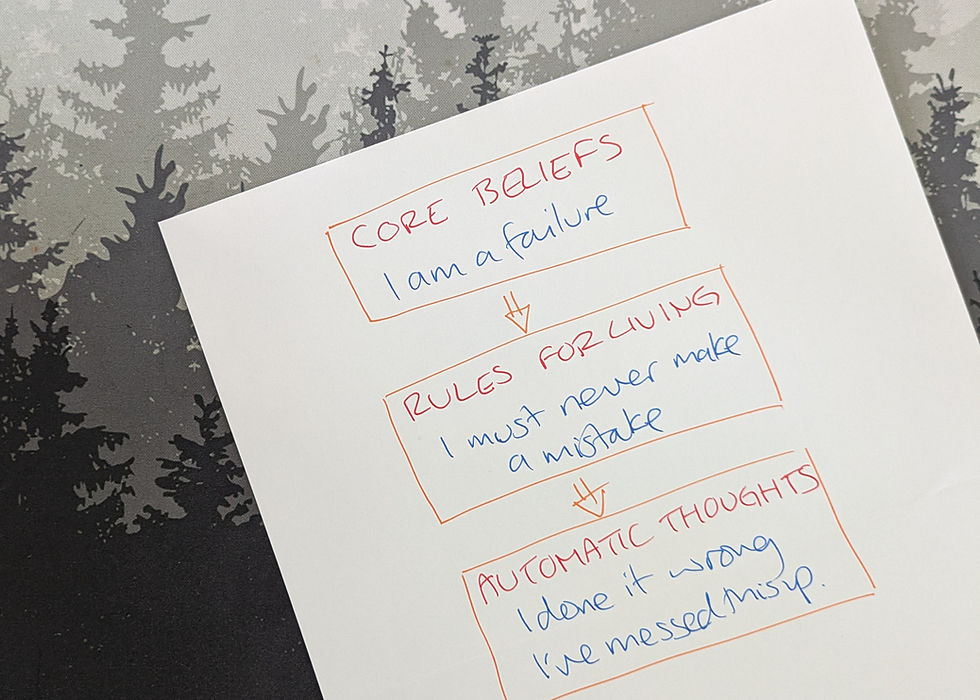 CORE BELIEFS
I am a failure
RULES FOR LIVING
I must never make
a mistake
AUTOMATIC THOUGHTS
I done it wrong
I've messed this up.